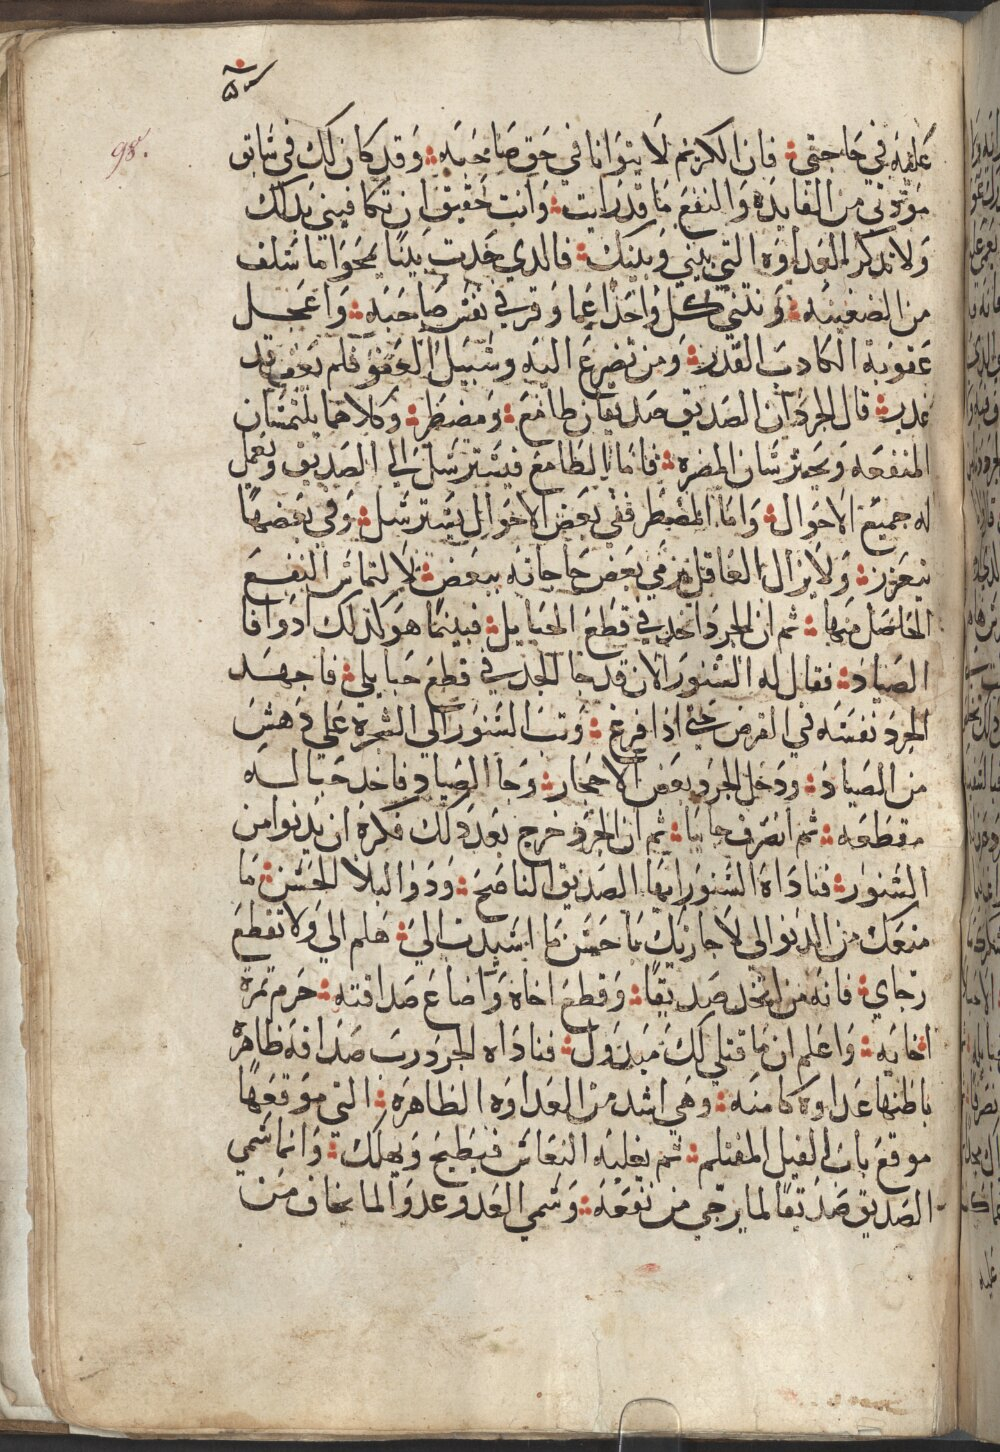 98.
عليه في حاجتي فان الكريم لا يتوانا في حق صاحبه وقد كان لك في سابق
مودتي من الفايده والنفع ما قد رايت وانت حقيق ان تكافيني بدلك
ولا تدكر العداوه التي بيني وبينك فالدي حدت بيننا يمحوا ما سلف
من الضغينه وننتني كل واحدا عما وقر في نفس صاحبه واعجل
عقوبة الكادب الغدر ومن تضرع اليه وسييل العفو فلم يعف قد
غدر قال الجرد ان الصديق صديقان طامع ومضطر وكلاهما يلتمسان
المنفعه ويحترسان المضره فاما الطامع فيسترسل الى الصديق ويعمل
له جميع الاحوال واما المضطر ففي بعض الاحوال يسترسل وفي بعضها
يتعزز ولا يزال العاقل يرمي بعض حاجاته ببعض لالتماس النفع
الحاصل منها ثم ان الجرد اخد في قطع الحبايل فبينما هو كدلك اد وافا
الصياد فقال له السنور الان قد جا الجد في قطع حبايلي فاجهد
الجرد نفسه في القرض حتى ادا فرغ وتب السنور الى الشجره على دهش
من الصياد ودخل الجرد بعض الاحجار وجا الصياد فاخد حباله
مقطعه ثم انصرف خايبا ثم ان الجرد خرج بعد دلك فكره ان يدنوا من
السنور فناداه السنور ايها الصديق الناصح ودو البلا الحسن ما
منعك من الدنوا الي لاجازيك باحسن ما اسديت الي هلم الي ولا تقطع
رجاي فانه من اتخد صديقا وقطع اخاه واضاع صداقته حرم تمرة
اخايه واعلم ان ما قتلي لك مبدول فناداه الجرد رب صداقه ظاهره
باطنها عداوه كامنه وهي اشد من العداوه الظاهره التي موقعها
موقع ناب الفيل المغتلم ثم يغلبه النعاس فيطيح ويهلك وانما سمي
الصديق صديقا لما يرجي من نفعه وسمي العدو عدوا لما يخاف من